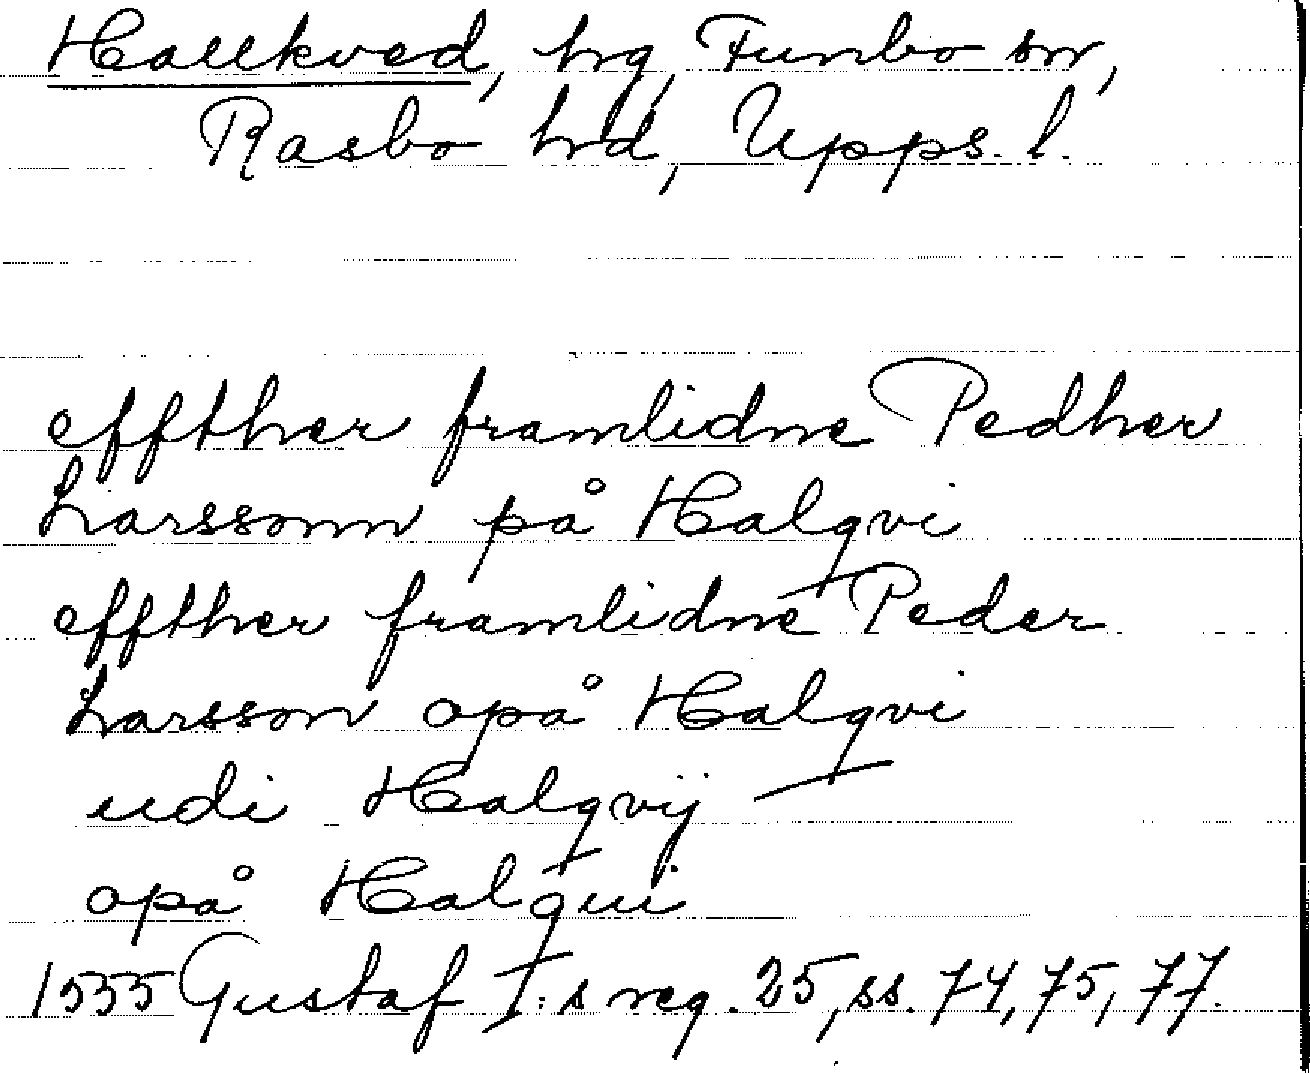 Hallkved, hg, Funbo sn,
Rasbo hd, Upps. l.
effther framlidne Pedher
Larssonn på Halqvi
effther framlidne Peder
Larsson opå Halqvi
udi Halqvij
opå Halqui
1555 Gustaf I:s reg. 25, ss. 74, 75, 77.